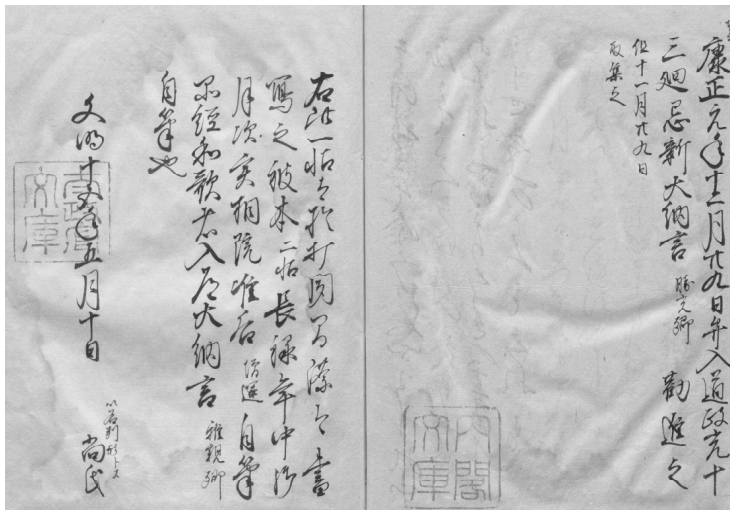 康正元年十二月廿九日弁入道政光十
三廻忌新大納言 勝光卿 勧進之
但十一月廿九日
取集之
内閣
文庫
右此一帖者於打聞間深々書
写之彼本二帖長禄年中御
月次実相院准后 増運 自筆
品経和歌者入道大納言 雅親卿
自筆也
文明十五年五月十日
以右判形トス
尚氏
文庫